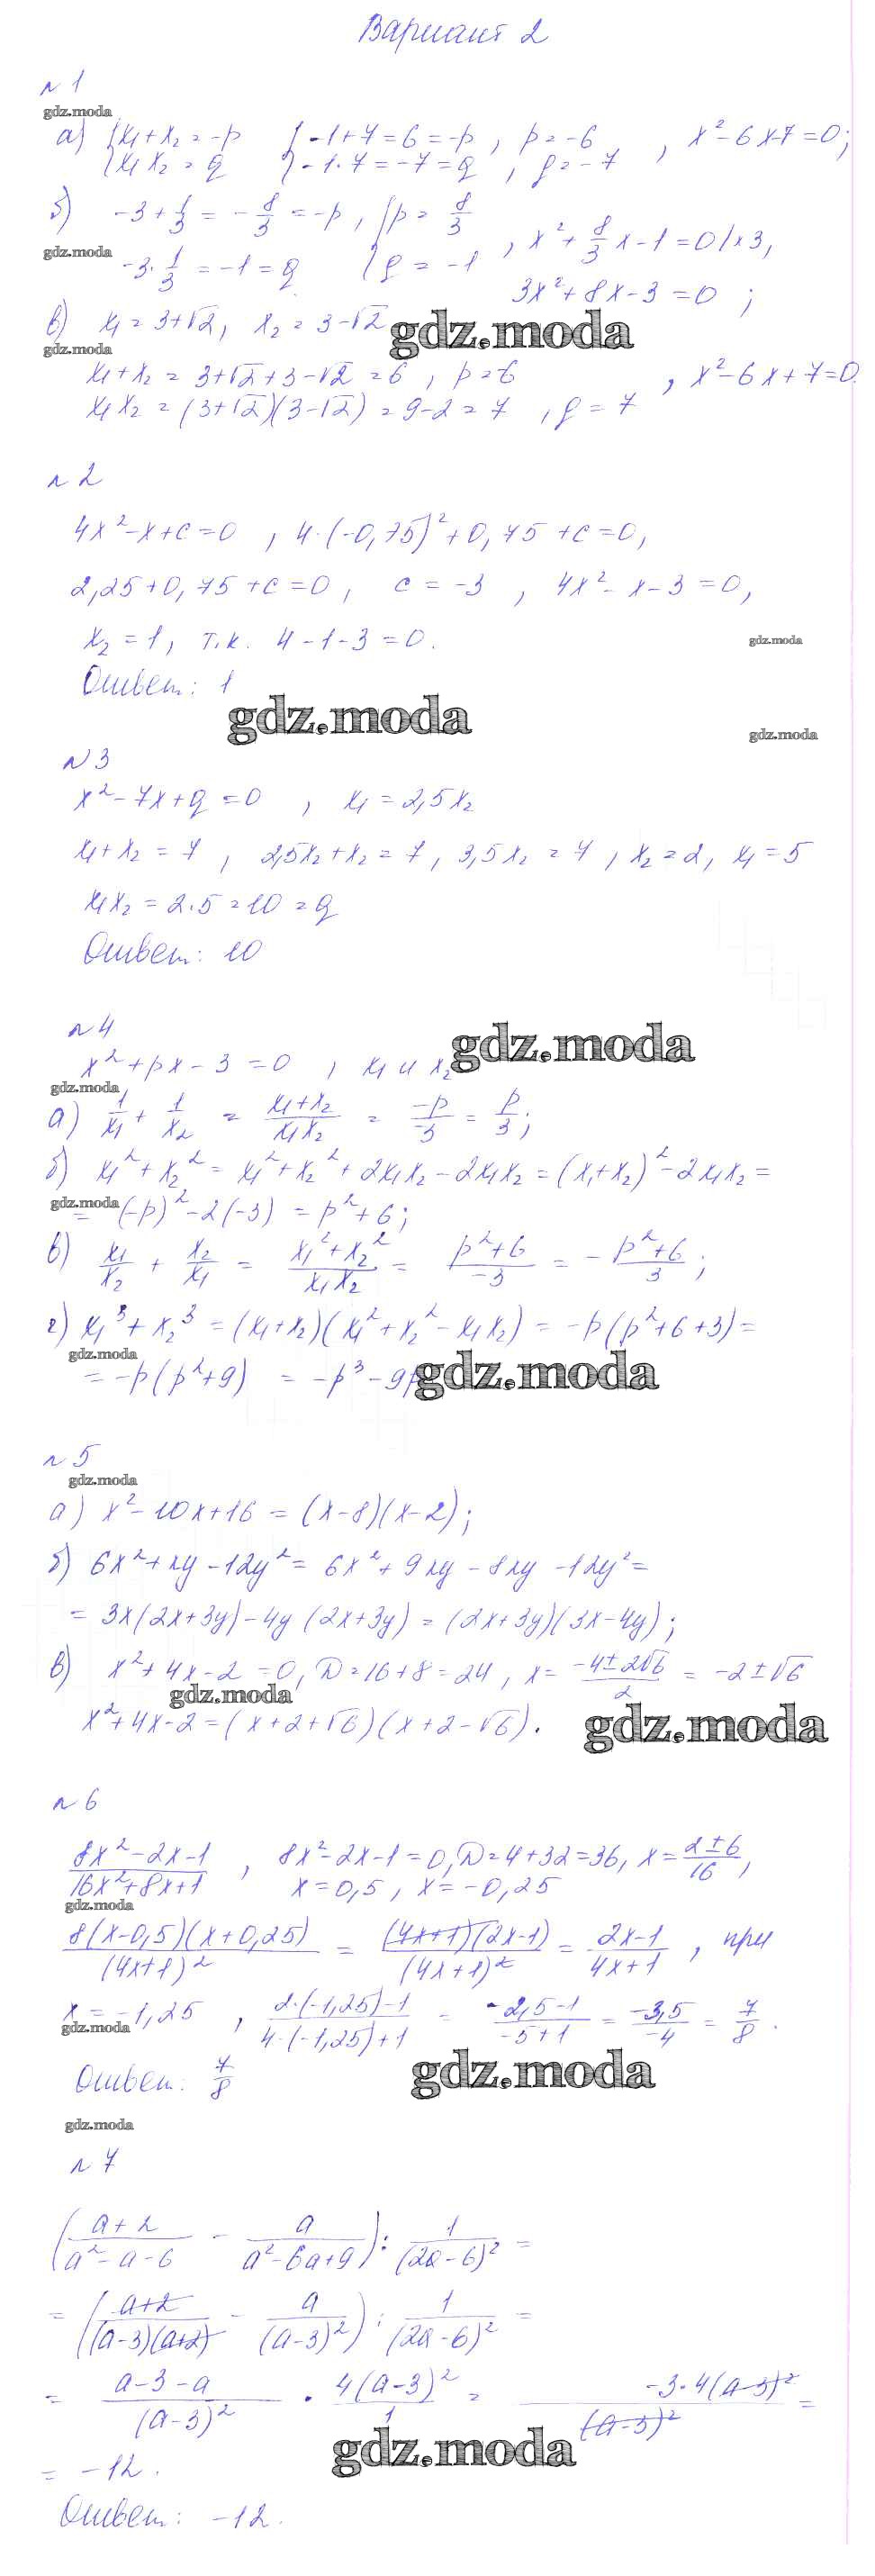 Вариант 2
№ 1
gdz.moda
а) {x₁+x₂ = -p {-1+7=6=-p, p=-6
{x₁x₂ = q {-1·7=-7=q, q=-7 , x²-6x-7=0;
б) -3+1/3 = -8/3 = -p, {p = 8/3
gdz.moda
-3·1/3 = -1 = q {q = -1 , x²+8/3x-1=0/×3,
3x²+8x-3=0 ;
в) x₁=3+√2, x₂=3-√2
gdz.moda
gdz.moda
x₁+x₂ = 3+√2+3-√2 = 6 , p=6
x₁x₂ = (3+√2)(3-√2) = 9-2 = 7 , q=7 , x²-6x+7=0.
№ 2
4x²-x+c=0 , 4·(-0,75)²+0,75+c=0,
2,25+0,75+c=0, c=-3 , 4x²-x-3=0,
x₂=1, т.к. 4-1-3=0.
gdz.moda
Ответ: 1
gdz.moda
gdz.moda
№ 3
x²-7x+q=0 , x₁=2,5x₂
x₁+x₂=7 , 2,5x₂+x₂=7, 3,5x₂=7 , x₂=2, x₁=5
x₁x₂=2·5=10=q
Ответ: 10
№ 4
gdz.moda
x²+px-3=0 , x₁ и x₂
gdz.moda
а) 1/x₁ + 1/x₂ = (x₁+x₂)/(x₁x₂) = -p/-3 = p/3;
б) x₁²+x₂² = x₁²+x₂²+2x₁x₂-2x₁x₂ = (x₁+x₂)²-2x₁x₂ =
gdz.moda
= (-p)²-2(-3) = p²+6;
в) x₁/x₂ + x₂/x₁ = (x₁²+x₂²)/(x₁x₂) = (p²+6)/-3 = -(p²+6)/3 ;
г) x₁³+x₂³ = (x₁+x₂)(x₁²+x₂²-x₁x₂) = -p(p²+6+3)=
gdz.moda
= -p(p²+9) = -p³-9p
gdz.moda
№ 5
gdz.moda
а) x²-10x+16 = (x-8)(x-2);
б) 6x²+xy-12y² = 6x²+9xy-8xy-12y²=
= 3x(2x+3y)-4y(2x+3y) = (2x+3y)(3x-4y);
в) x²+4x-2=0, D=16+8=24, x=(-4±2√6)/2 = -2±√6
gdz.moda
x²+4x-2=(x+2+√6)(x+2-√6).
gdz.moda
№ 6
(8x²-2x-1)/(16x²+8x+1) , 8x²-2x-1=0, D=4+32=36, x=(2±6)/16,
x=0,5, x=-0,25
gdz.moda
8(x-0,5)(x+0,25)/(4x+1)² = (4x+1)(2x-1)/(4x+1)² = (2x-1)/(4x+1) , при
x=-1,25 , (2·(-1,25)-1)/(4·(-1,25)+1) = (-2,5-1)/(-5+1) = -3,5/-4 = 7/8 .
gdz.moda
Ответ: 7/8
gdz.moda
gdz.moda
№ 7
((a+2)/(a²-a-6) - a/(a²-6a+9)) : 1/(2a-6)² =
= ((a+2)/((a-3)(a+2)) - a/(a-3)²) : 1/(2a-6)² =
= (a-3-a)/(a-3)² · 4(a-3)²/1 = -3·4(a-3)²/(a-3)² =
gdz.moda
= -12.
Ответ: -12.